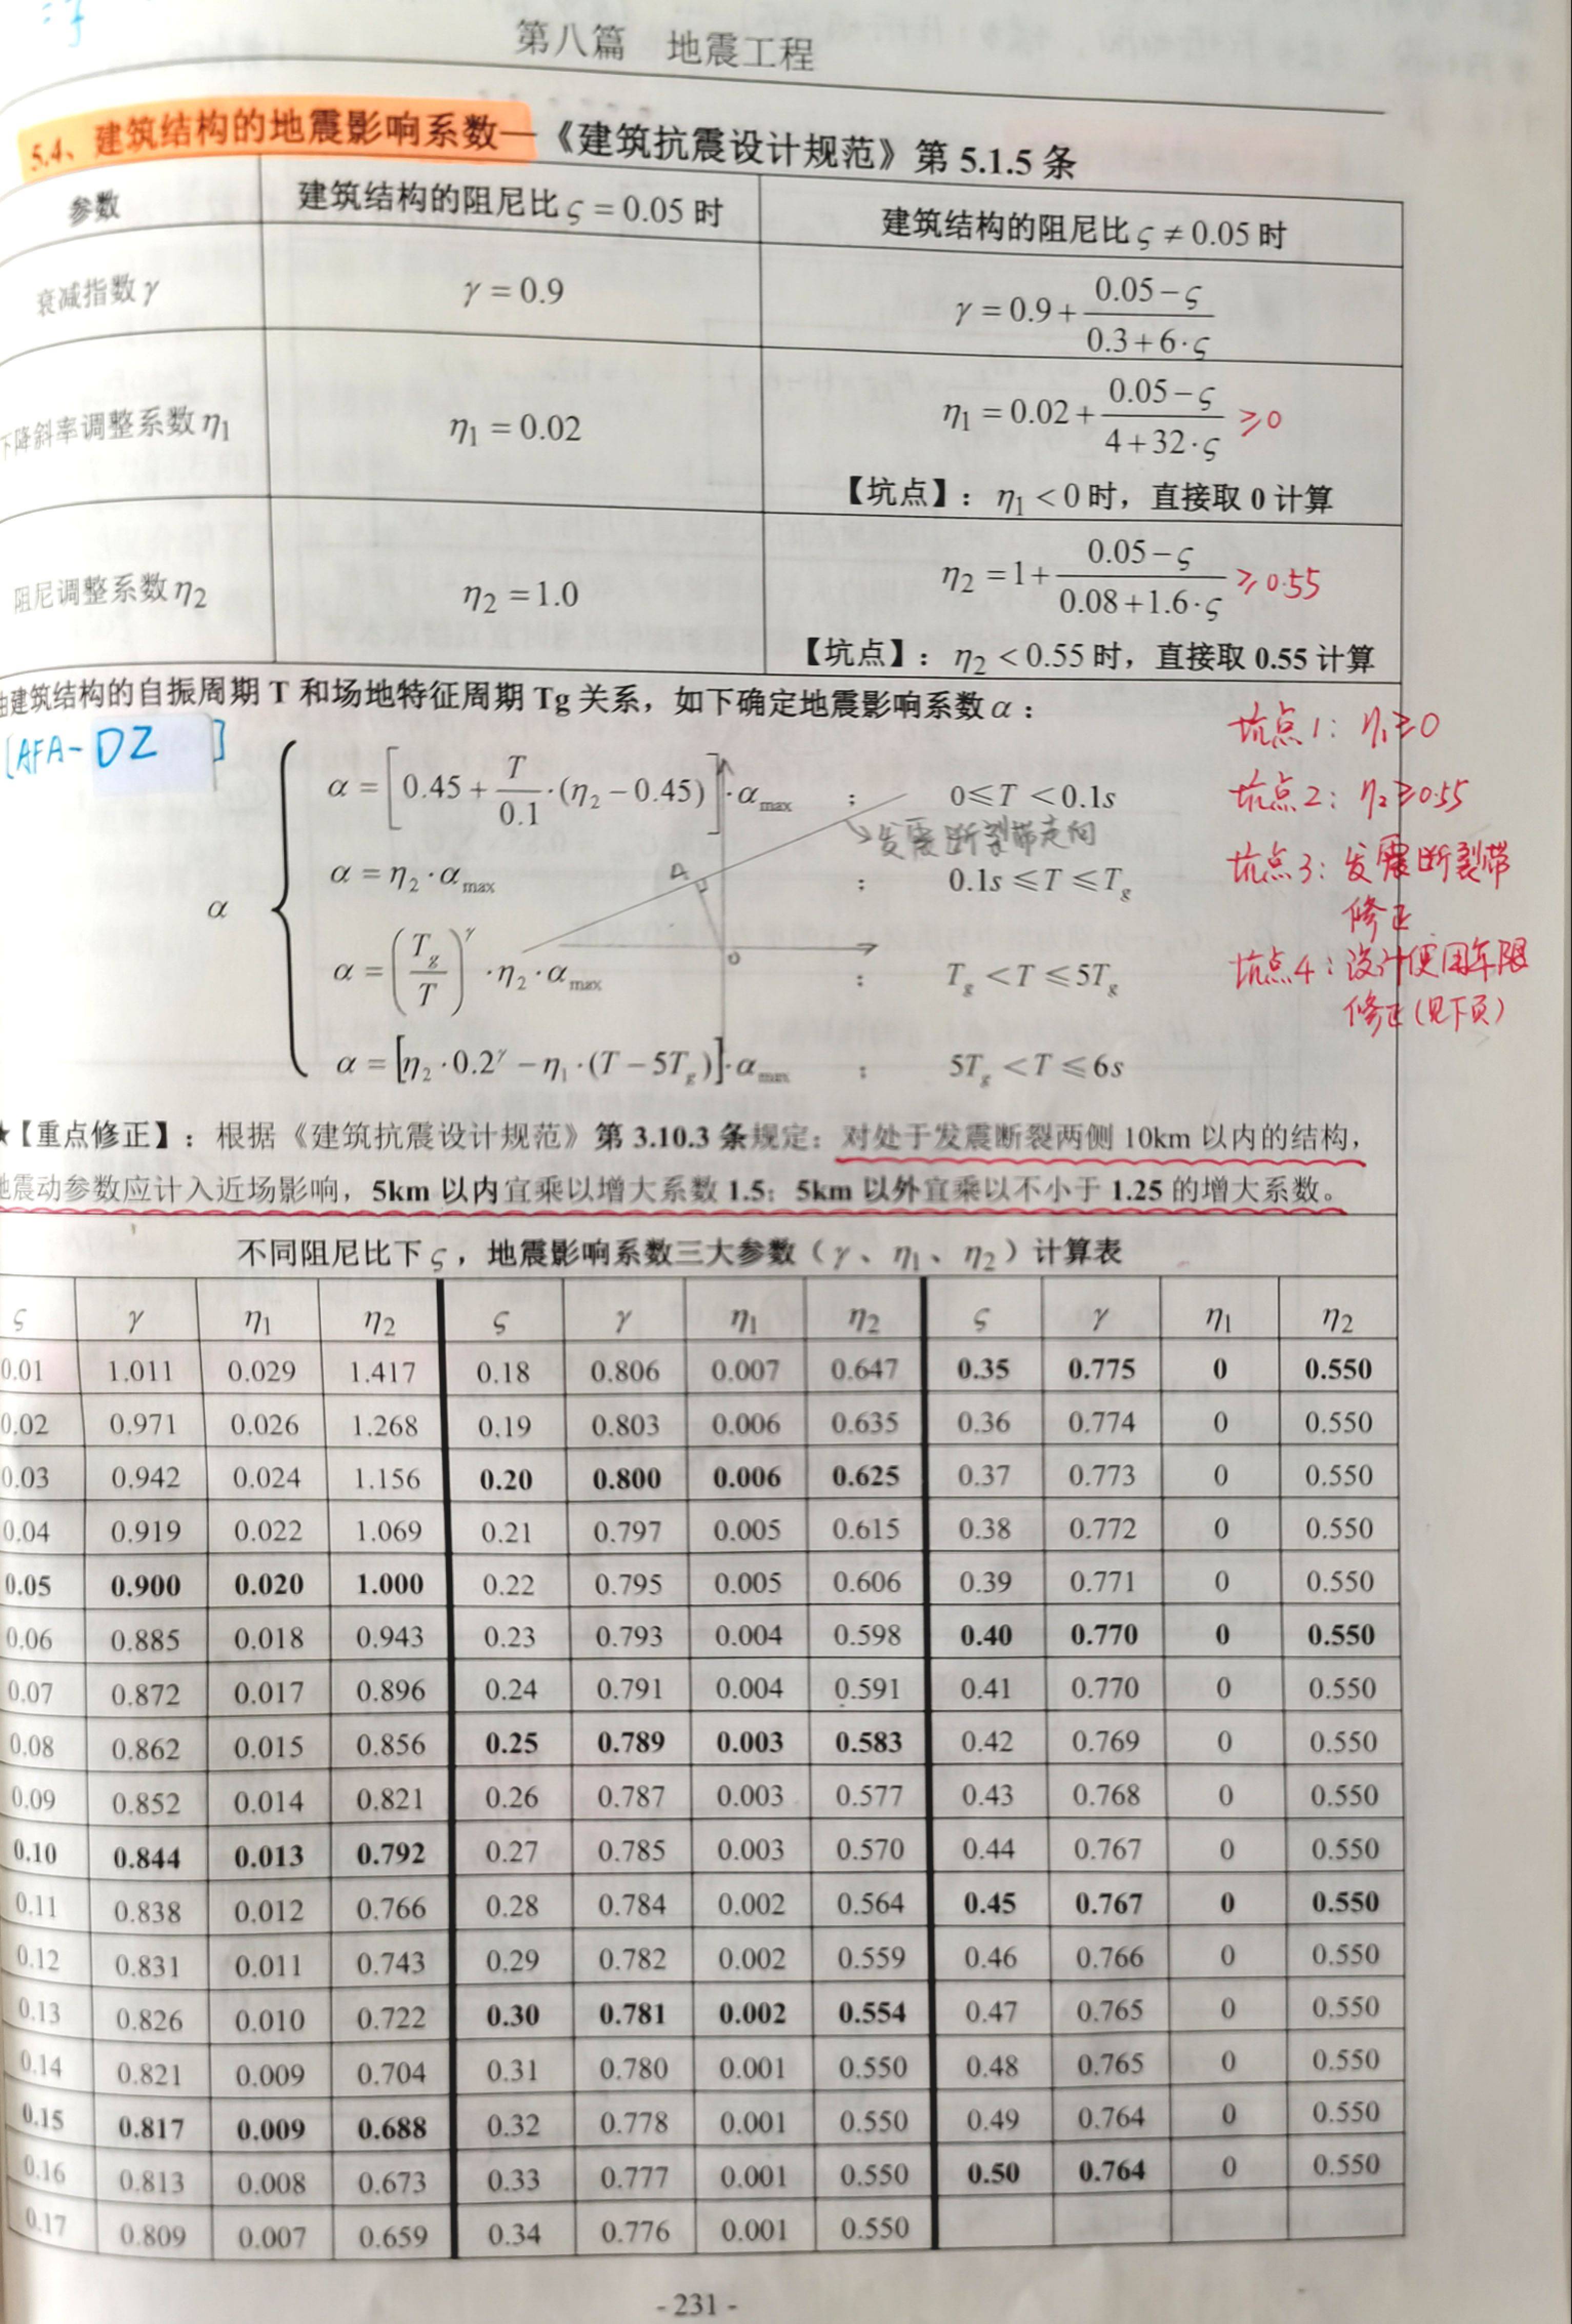 第八篇 地震工程
5.4、建筑结构的地震影响系数—《建筑抗震设计规范》第 5.1.5 条
参数 建筑结构的阻尼比 ς = 0.05 时 建筑结构的阻尼比 ς ≠ 0.05 时
衰减指数 γ γ = 0.9 γ = 0.9 + (0.05 − ς)/(0.3 + 6·ς)
下降斜率调整系数 η₁ η₁ = 0.02 η₁ = 0.02 + (0.05 − ς)/(4 + 32·ς) ≥0
【坑点】: η₁ < 0 时，直接取 0 计算
阻尼调整系数 η₂ η₂ = 1.0 η₂ = 1 + (0.05 − ς)/(0.08 + 1.6·ς) ≥0.55
【坑点】: η₂ < 0.55 时，直接取 0.55 计算
由建筑结构的自振周期 T 和场地特征周期 Tg 关系，如下确定地震影响系数 α：
[AFA-DZ ]
α = [0.45 + T/0.1·(η₂ − 0.45)]·α_max ; 0≤T <0.1s
发震断裂带走向
α = η₂·α_max ; 0.1s ≤T ≤T_g
A
α
α = (T_g/T)^γ·η₂·α_max ; T_g <T ≤5T_g
0
α = [η₂·0.2^γ − η₁·(T − 5T_g)]·α_max ; 5T_g <T ≤6s
坑点1: η₁≥0
坑点2: η₂≥0.55
坑点3: 发震断裂带
修正
坑点4: 设计使用年限
修正(见下页)
★【重点修正】：根据《建筑抗震设计规范》第 3.10.3 条规定：对处于发震断裂两侧 10km 以内的结构，
地震动参数应计入近场影响，5km 以内宜乘以增大系数 1.5；5km 以外宜乘以不小于 1.25 的增大系数。
不同阻尼比下 ς，地震影响系数三大参数（γ、η₁、η₂）计算表
ς γ η₁ η₂ ς γ η₁ η₂ ς γ η₁ η₂
0.01 1.011 0.029 1.417 0.18 0.806 0.007 0.647 0.35 0.775 0 0.550
0.02 0.971 0.026 1.268 0.19 0.803 0.006 0.635 0.36 0.774 0 0.550
0.03 0.942 0.024 1.156 0.20 0.800 0.006 0.625 0.37 0.773 0 0.550
0.04 0.919 0.022 1.069 0.21 0.797 0.005 0.615 0.38 0.772 0 0.550
0.05 0.900 0.020 1.000 0.22 0.795 0.005 0.606 0.39 0.771 0 0.550
0.06 0.885 0.018 0.943 0.23 0.793 0.004 0.598 0.40 0.770 0 0.550
0.07 0.872 0.017 0.896 0.24 0.791 0.004 0.591 0.41 0.770 0 0.550
0.08 0.862 0.015 0.856 0.25 0.789 0.003 0.583 0.42 0.769 0 0.550
0.09 0.852 0.014 0.821 0.26 0.787 0.003 0.577 0.43 0.768 0 0.550
0.10 0.844 0.013 0.792 0.27 0.785 0.003 0.570 0.44 0.767 0 0.550
0.11 0.838 0.012 0.766 0.28 0.784 0.002 0.564 0.45 0.767 0 0.550
0.12 0.831 0.011 0.743 0.29 0.782 0.002 0.559 0.46 0.766 0 0.550
0.13 0.826 0.010 0.722 0.30 0.781 0.002 0.554 0.47 0.765 0 0.550
0.14 0.821 0.009 0.704 0.31 0.780 0.001 0.550 0.48 0.765 0 0.550
0.15 0.817 0.009 0.688 0.32 0.778 0.001 0.550 0.49 0.764 0 0.550
0.16 0.813 0.008 0.673 0.33 0.777 0.001 0.550 0.50 0.764 0 0.550
0.17 0.809 0.007 0.659 0.34 0.776 0.001 0.550
- 231 -